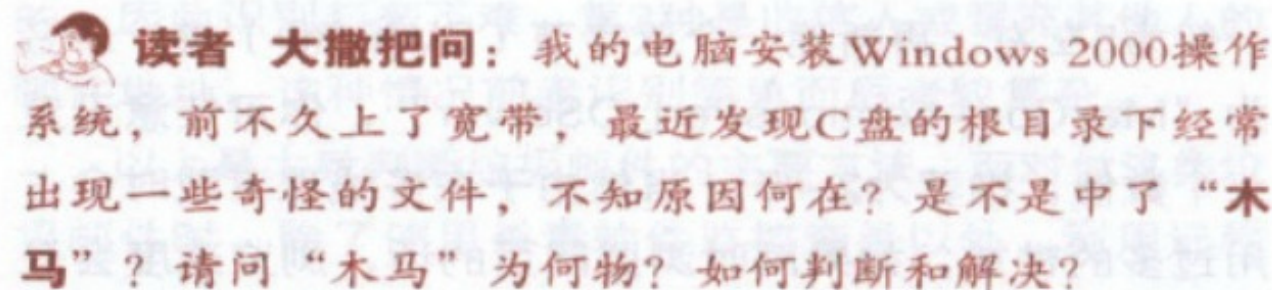 读者 大撒把问：我的电脑安装Windows 2000操作
系统，前不久上了宽带，最近发现C盘的根目录下经常
出现一些奇怪的文件，不知原因何在？是不是中了“木
马”？请问“木马”为何物？如何判断和解决？